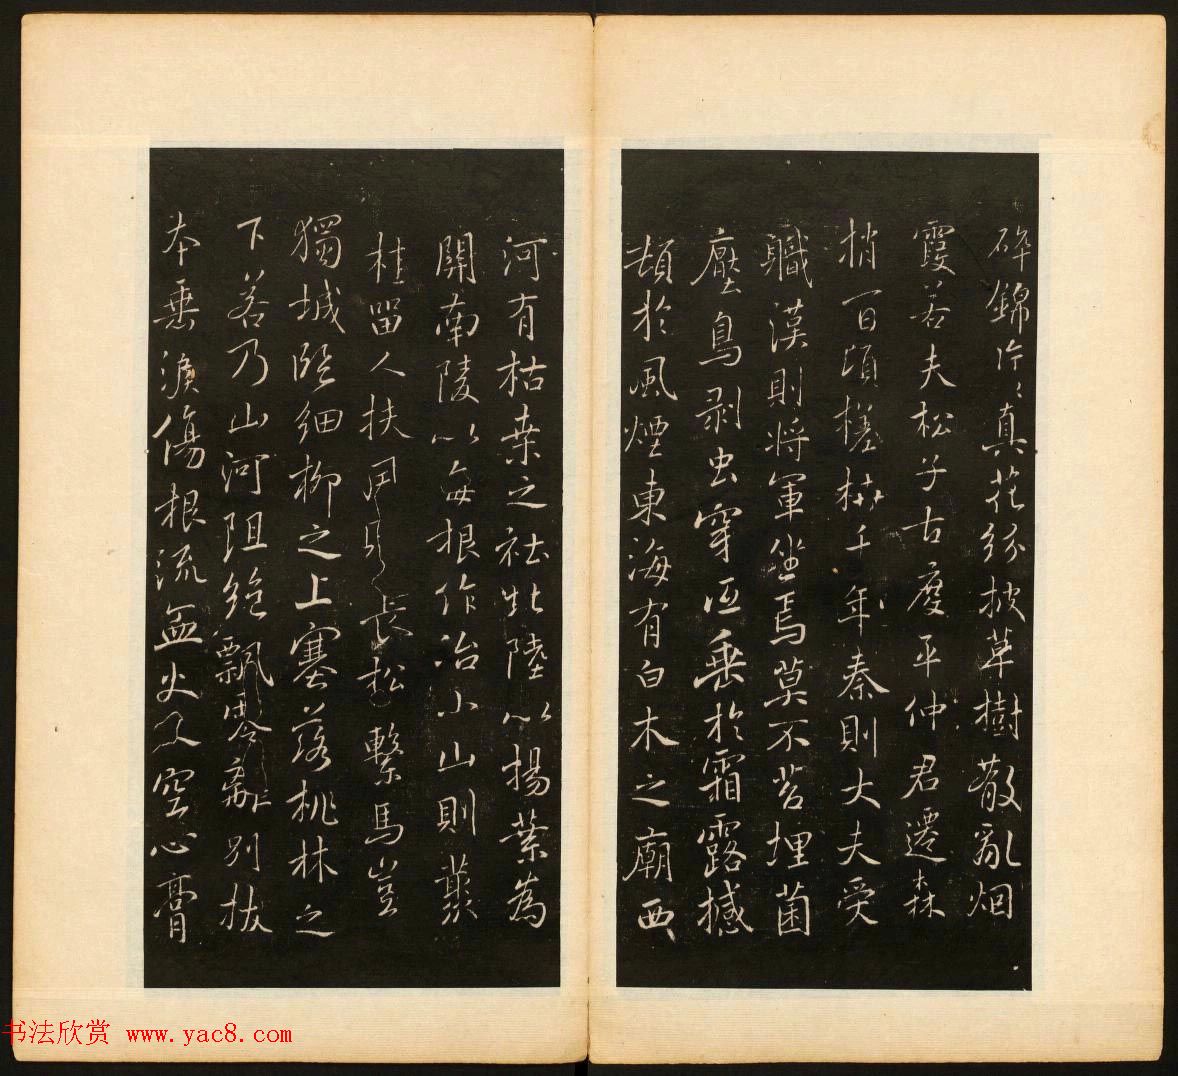 碎錦片〻真花紛披草樹散亂烟
霞若夫松子古度平仲君遷森
梢百頃槎枿千年秦則大夫受
職漢則將軍坐焉莫不苔埋菌
壓鳥剥虫穿低垂於霜露撼
頓於風煙東海有白木之廟西
河有枯桒之社北陸以楊葉為
關南陵以每根作冶小山則藂
桂留人扶風長松繫馬豈
獨城臨細柳之上塞落桃林之
下若乃山河阻絶飄零離別拔
本垂淚傷根流血火入空心膏
书法欣赏 www.yac8.com